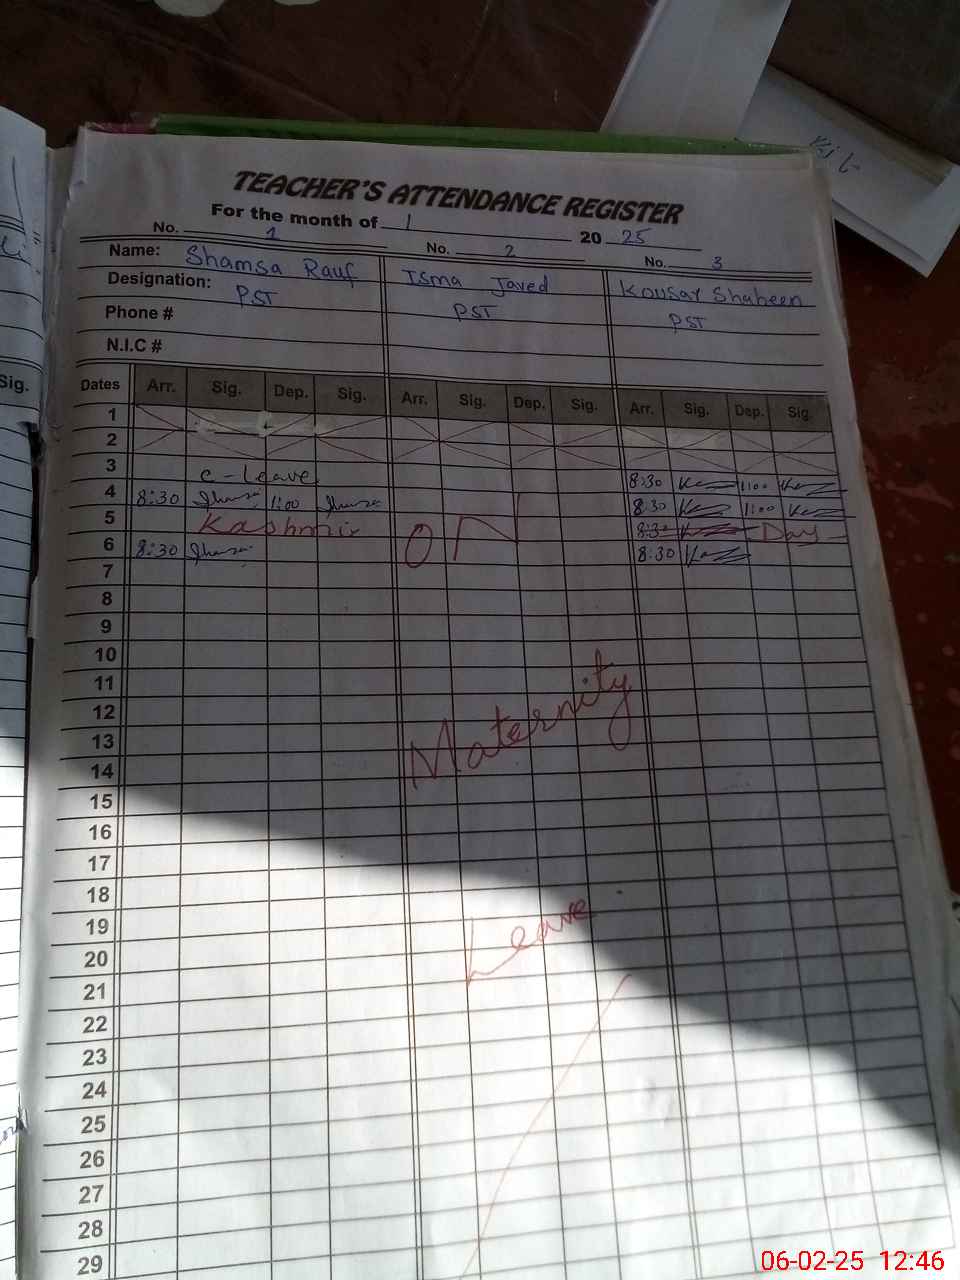 TEACHER'S ATTENDANCE REGISTER
For the month of 1 20 25
No. 1 No. 2 No. 3
Name: Shamsa Rauf Isma Javed Kousar Shaheen
Designation: PST PST PST
Phone #
N.I.C #
Sig.
Dates Arr. Sig. Dep. Sig. Arr. Sig. Dep. Sig. Arr. Sig. Dep. Sig.
1
2
3 C-Leave 8:30 11:00
4 8:30 11:00 8:30 11:00
5 Kashmir 8:30 Day
6 8:30 8:30
7
8
9
10
11
12 Maternity
13
14
15
16
17
18
19 Leave
20
21
22
23
24
25
26
27
28
29
06-02-25 12:46